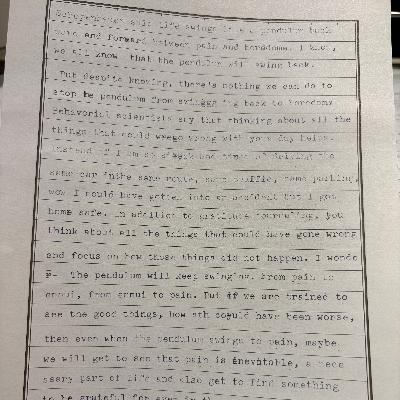 Schopenhauer said life swings like a pendulum back
and forward between pain and boredome. I know,
we all know that the pendulum will swing back.
But despite knowing, there's nothing we can do to
stop he pendulum from swingging back to boredome
Behavorial scientists say that thinking about all the
things that could wrego wrong with your day helps.
Instead of I am so s the
same car inthe same route, same traffic, same parking,
wow I could have gotten into an accident but I got
home safe. In addition to gratitude journaling, you
think about all the things that could have gone wrong
and focus on how those things did not happen. I wonde
r. The pendulum will keep swinging. From pain to
ennui, from ennui to pain. But if we are trained to
see the good things, how sth coyuld have been worse,
then even when the pendulum swings to pain, maybe
we will get to see that pain is inevitable, a nece
ssary part of life and also get to find something
to be grateful for even in